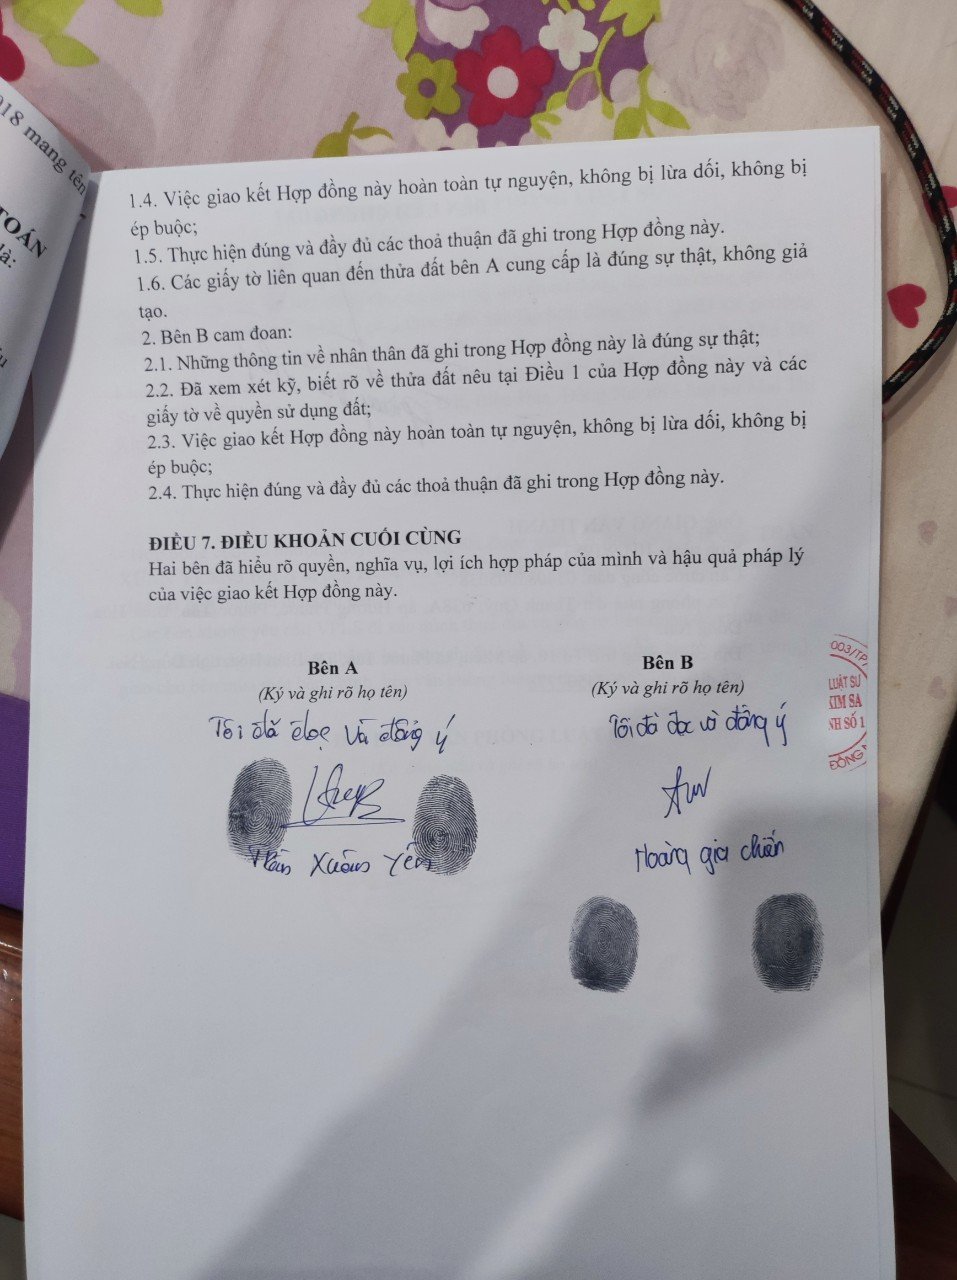 018 mang tên
TOÁN
là:
1.4. Việc giao kết Hợp đồng này hoàn toàn tự nguyện, không bị lừa dối, không bị
ép buộc;
1.5. Thực hiện đúng và đầy đủ các thoả thuận đã ghi trong Hợp đồng này.
1.6. Các giấy tờ liên quan đến thửa đất bên A cung cấp là đúng sự thật, không giả
tạo.
2. Bên B cam đoan:
2.1. Những thông tin về nhân thân đã ghi trong Hợp đồng này là đúng sự thật;
2.2. Đã xem xét kỹ, biết rõ về thửa đất nêu tại Điều 1 của Hợp đồng này và các
giấy tờ về quyền sử dụng đất;
2.3. Việc giao kết Hợp đồng này hoàn toàn tự nguyện, không bị lừa dối, không bị
ép buộc;
2.4. Thực hiện đúng và đầy đủ các thoả thuận đã ghi trong Hợp đồng này.
ĐIỀU 7. ĐIỀU KHOẢN CUỐI CÙNG
Hai bên đã hiểu rõ quyền, nghĩa vụ, lợi ích hợp pháp của mình và hậu quả pháp lý
của việc giao kết Hợp đồng này.
Bên A
(Ký và ghi rõ họ tên)
Tôi đã đọc và đồng ý
Xuân Yên
Bên B
(Ký và ghi rõ họ tên)
Tôi đã đọc và đồng ý
Hoàng gia chiến
003/TP
LUẬT SƯ
KIM SA
NH SỐ 1
ĐỒNG